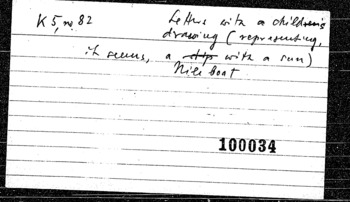 K 5, no 82
Letters with a children's
drawing (representing,
it seems, a ship with a sun)
Nile boat
100034